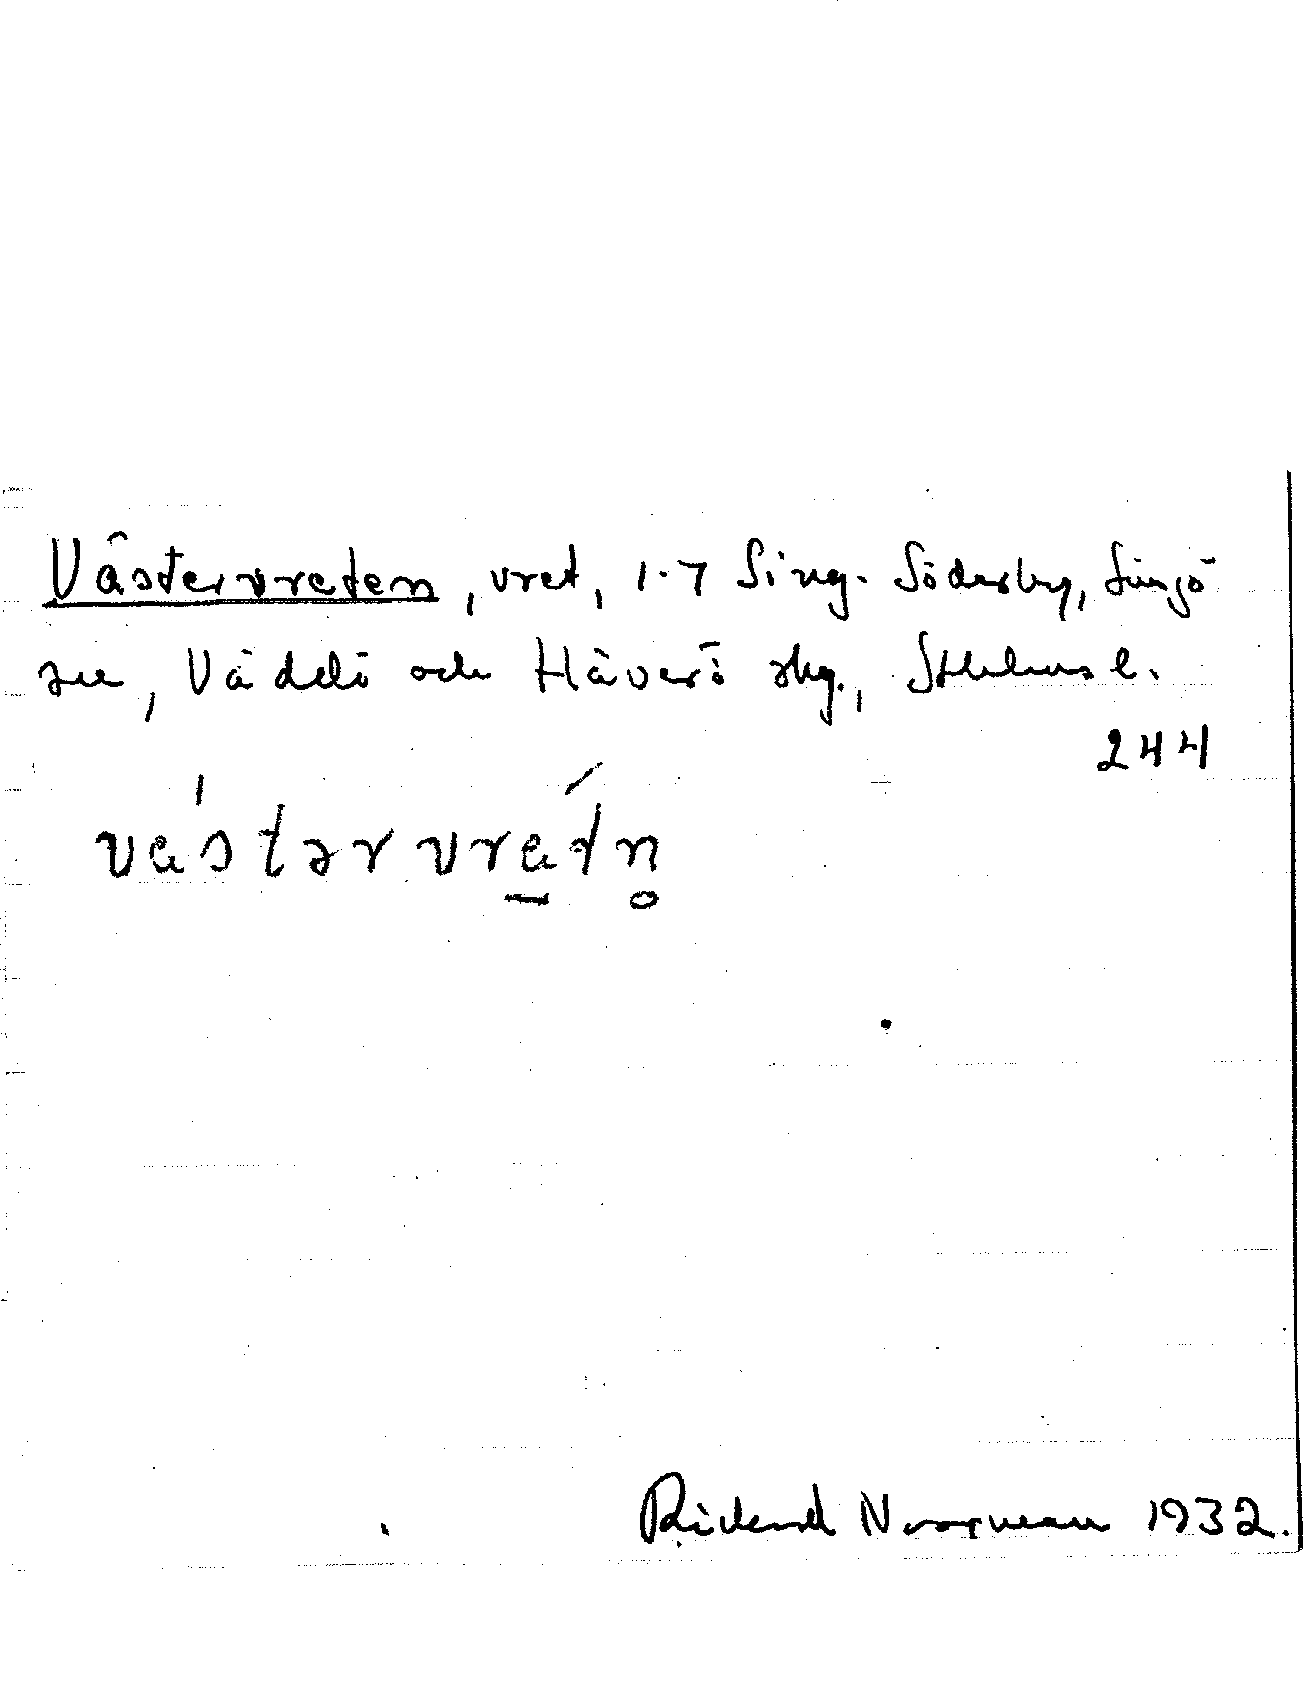 Västervreten, vret, 1-7 Sing. Söderby, Singö
sn, Väddö och Häverö skg., Sthlms l.
244
västərvrætn̥
Rickard Norrman 1932.